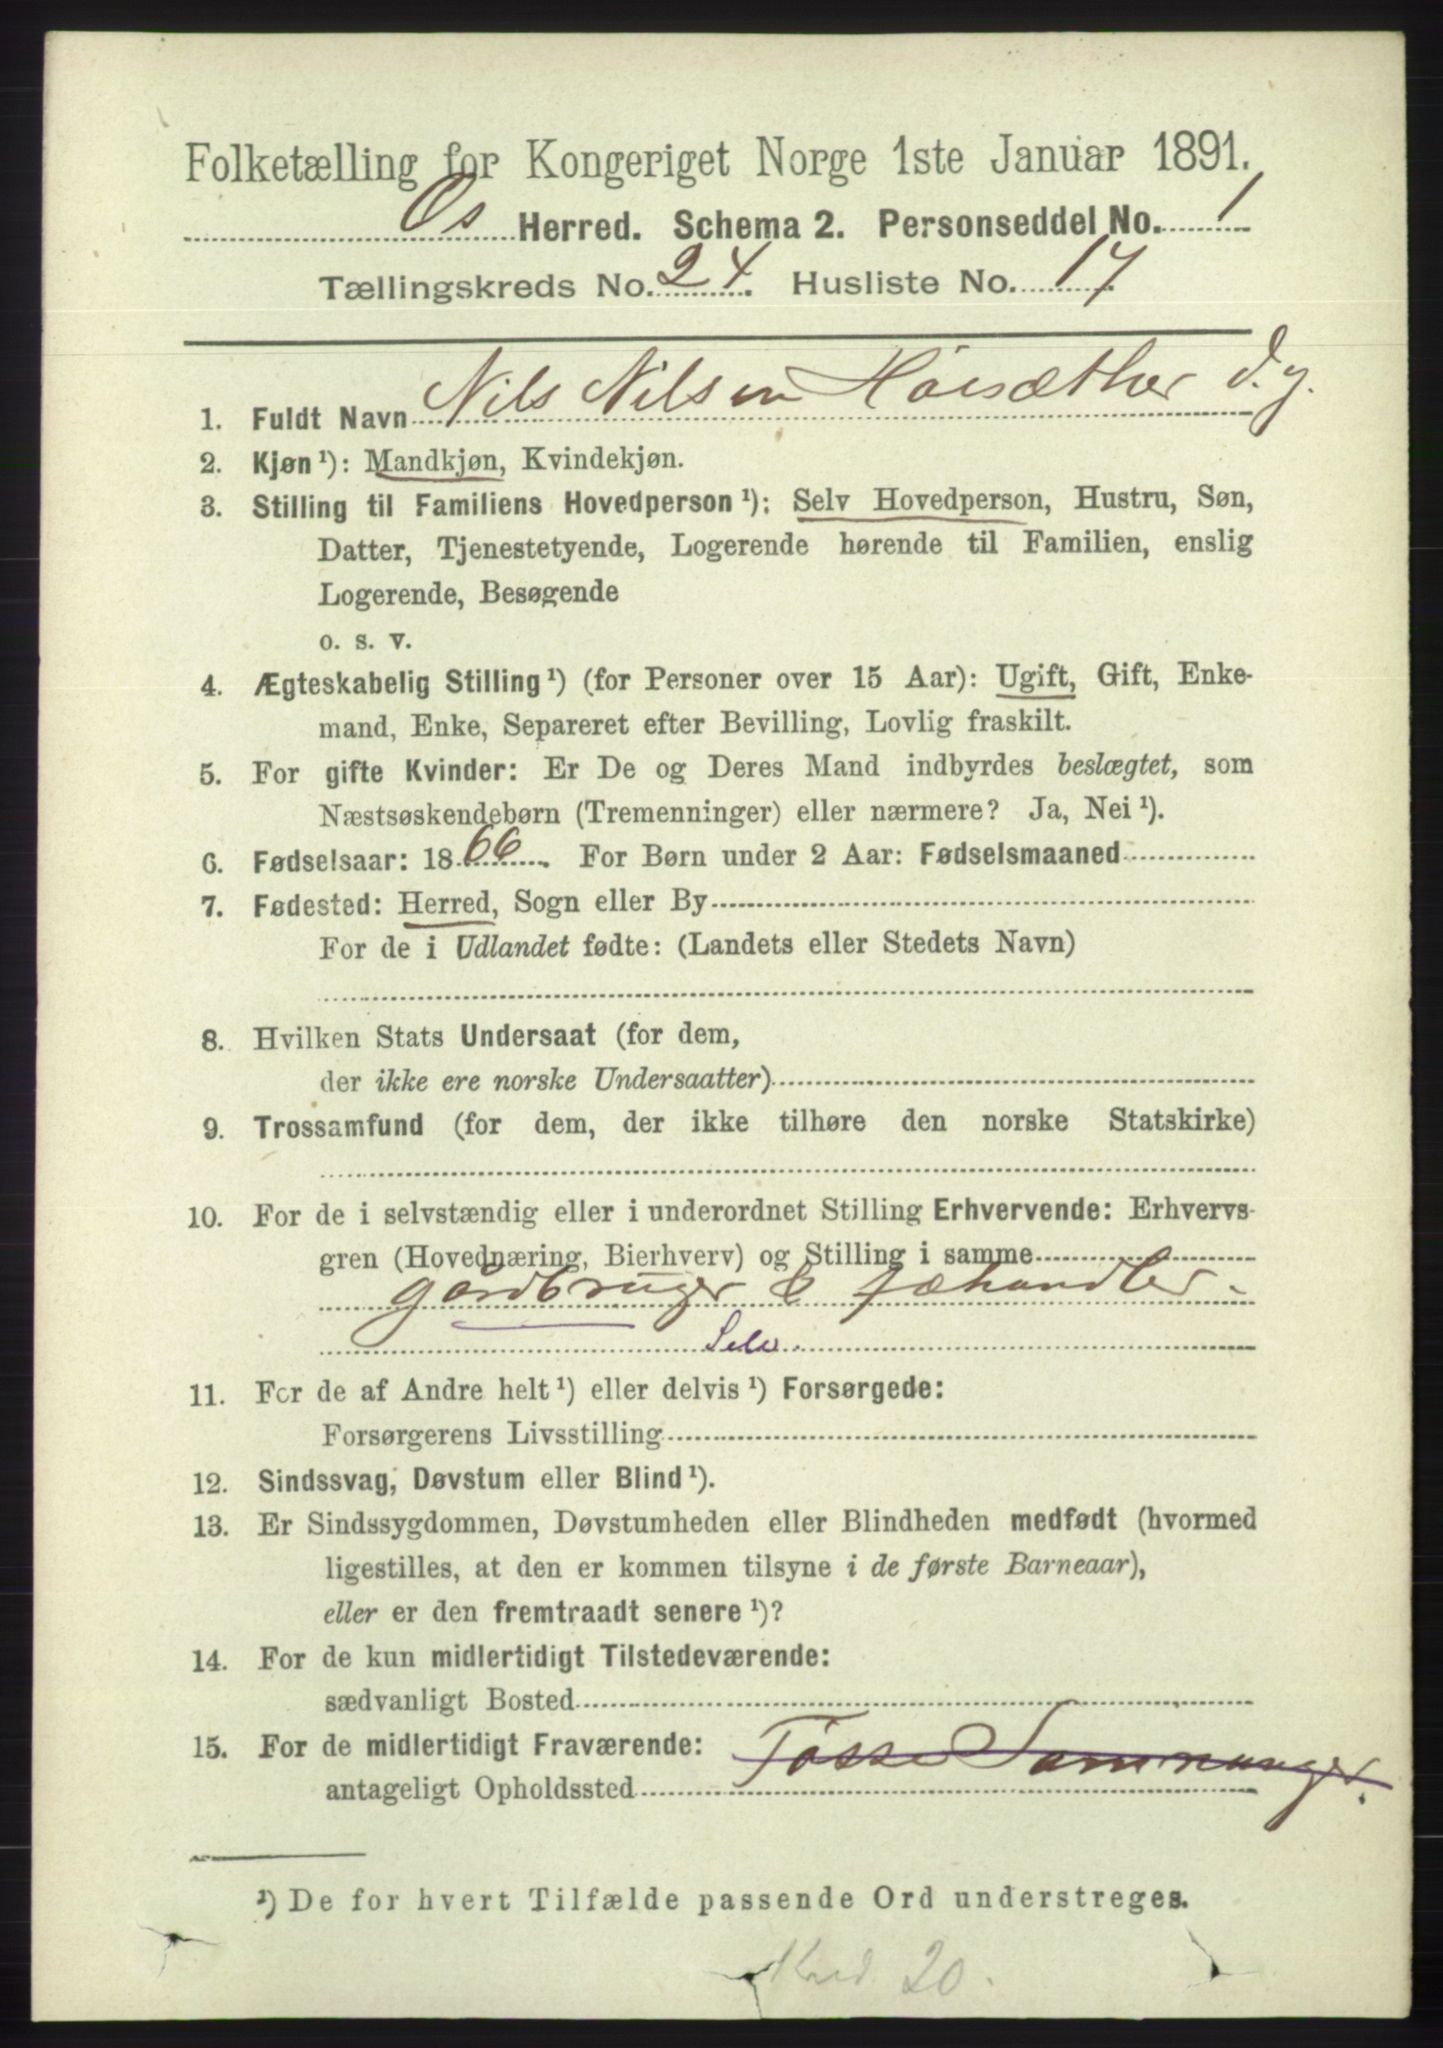 Folketælling for Kongeriget Norge 1ste Januar 1891.
Os Herred. Schema 2. Personseddel No. 1
Tællingskreds No. 24. Husliste No. 17
1. Fuldt Navn Nils Nilsen Haisæther d.y.
2. Kjøn ¹): Mandkjøn, Kvindekjøn.
3. Stilling til Familiens Hovedperson ¹): Selv Hovedperson, Hustru, Søn,
Datter, Tjenestetyende, Logerende hørende til Familien, enslig
Logerende, Besøgende
o. s. v.
4. Ægteskabelig Stilling ¹) (for Personer over 15 Aar): Ugift, Gift, Enke-
mand, Enke, Separeret efter Bevilling, Lovlig fraskilt.
5. For gifte Kvinder: Er De og Deres Mand indbyrdes beslægtet, som
Næstsøskendebørn (Tremenninger) eller nærmere? Ja, Nei ¹).
6. Fødselsaar: 1866. For Børn under 2 Aar: Fødselsmaaned
7. Fødested: Herred, Sogn eller By
For de i Udlandet fødte: (Landets eller Stedets Navn)
8. Hvilken Stats Undersaat (for dem,
der ikke ere norske Undersaatter)
9. Trossamfund (for dem, der ikke tilhøre den norske Statskirke)
10. For de i selvstændig eller i underordnet Stilling Erhvervende: Erhvervs-
gren (Hovednæring, Bierhverv) og Stilling i samme
gårdbruger & fæhandler.
Selv
11. For de af Andre helt ¹) eller delvis ¹) Forsørgede:
Forsørgerens Livsstilling
12. Sindssvag, Døvstum eller Blind ¹).
13. Er Sindssygdommen, Døvstumheden eller Blindheden medfødt (hvormed
ligestilles, at den er kommen tilsyne i de første Barneaar),
eller er den fremtraadt senere ¹)?
14. For de kun midlertidigt Tilstedeværende:
sædvanligt Bosted
15. For de midlertidigt Fraværende: Tøsse Samnanger.
antageligt Opholdssted
¹) De for hvert Tilfælde passende Ord understreges.
20.